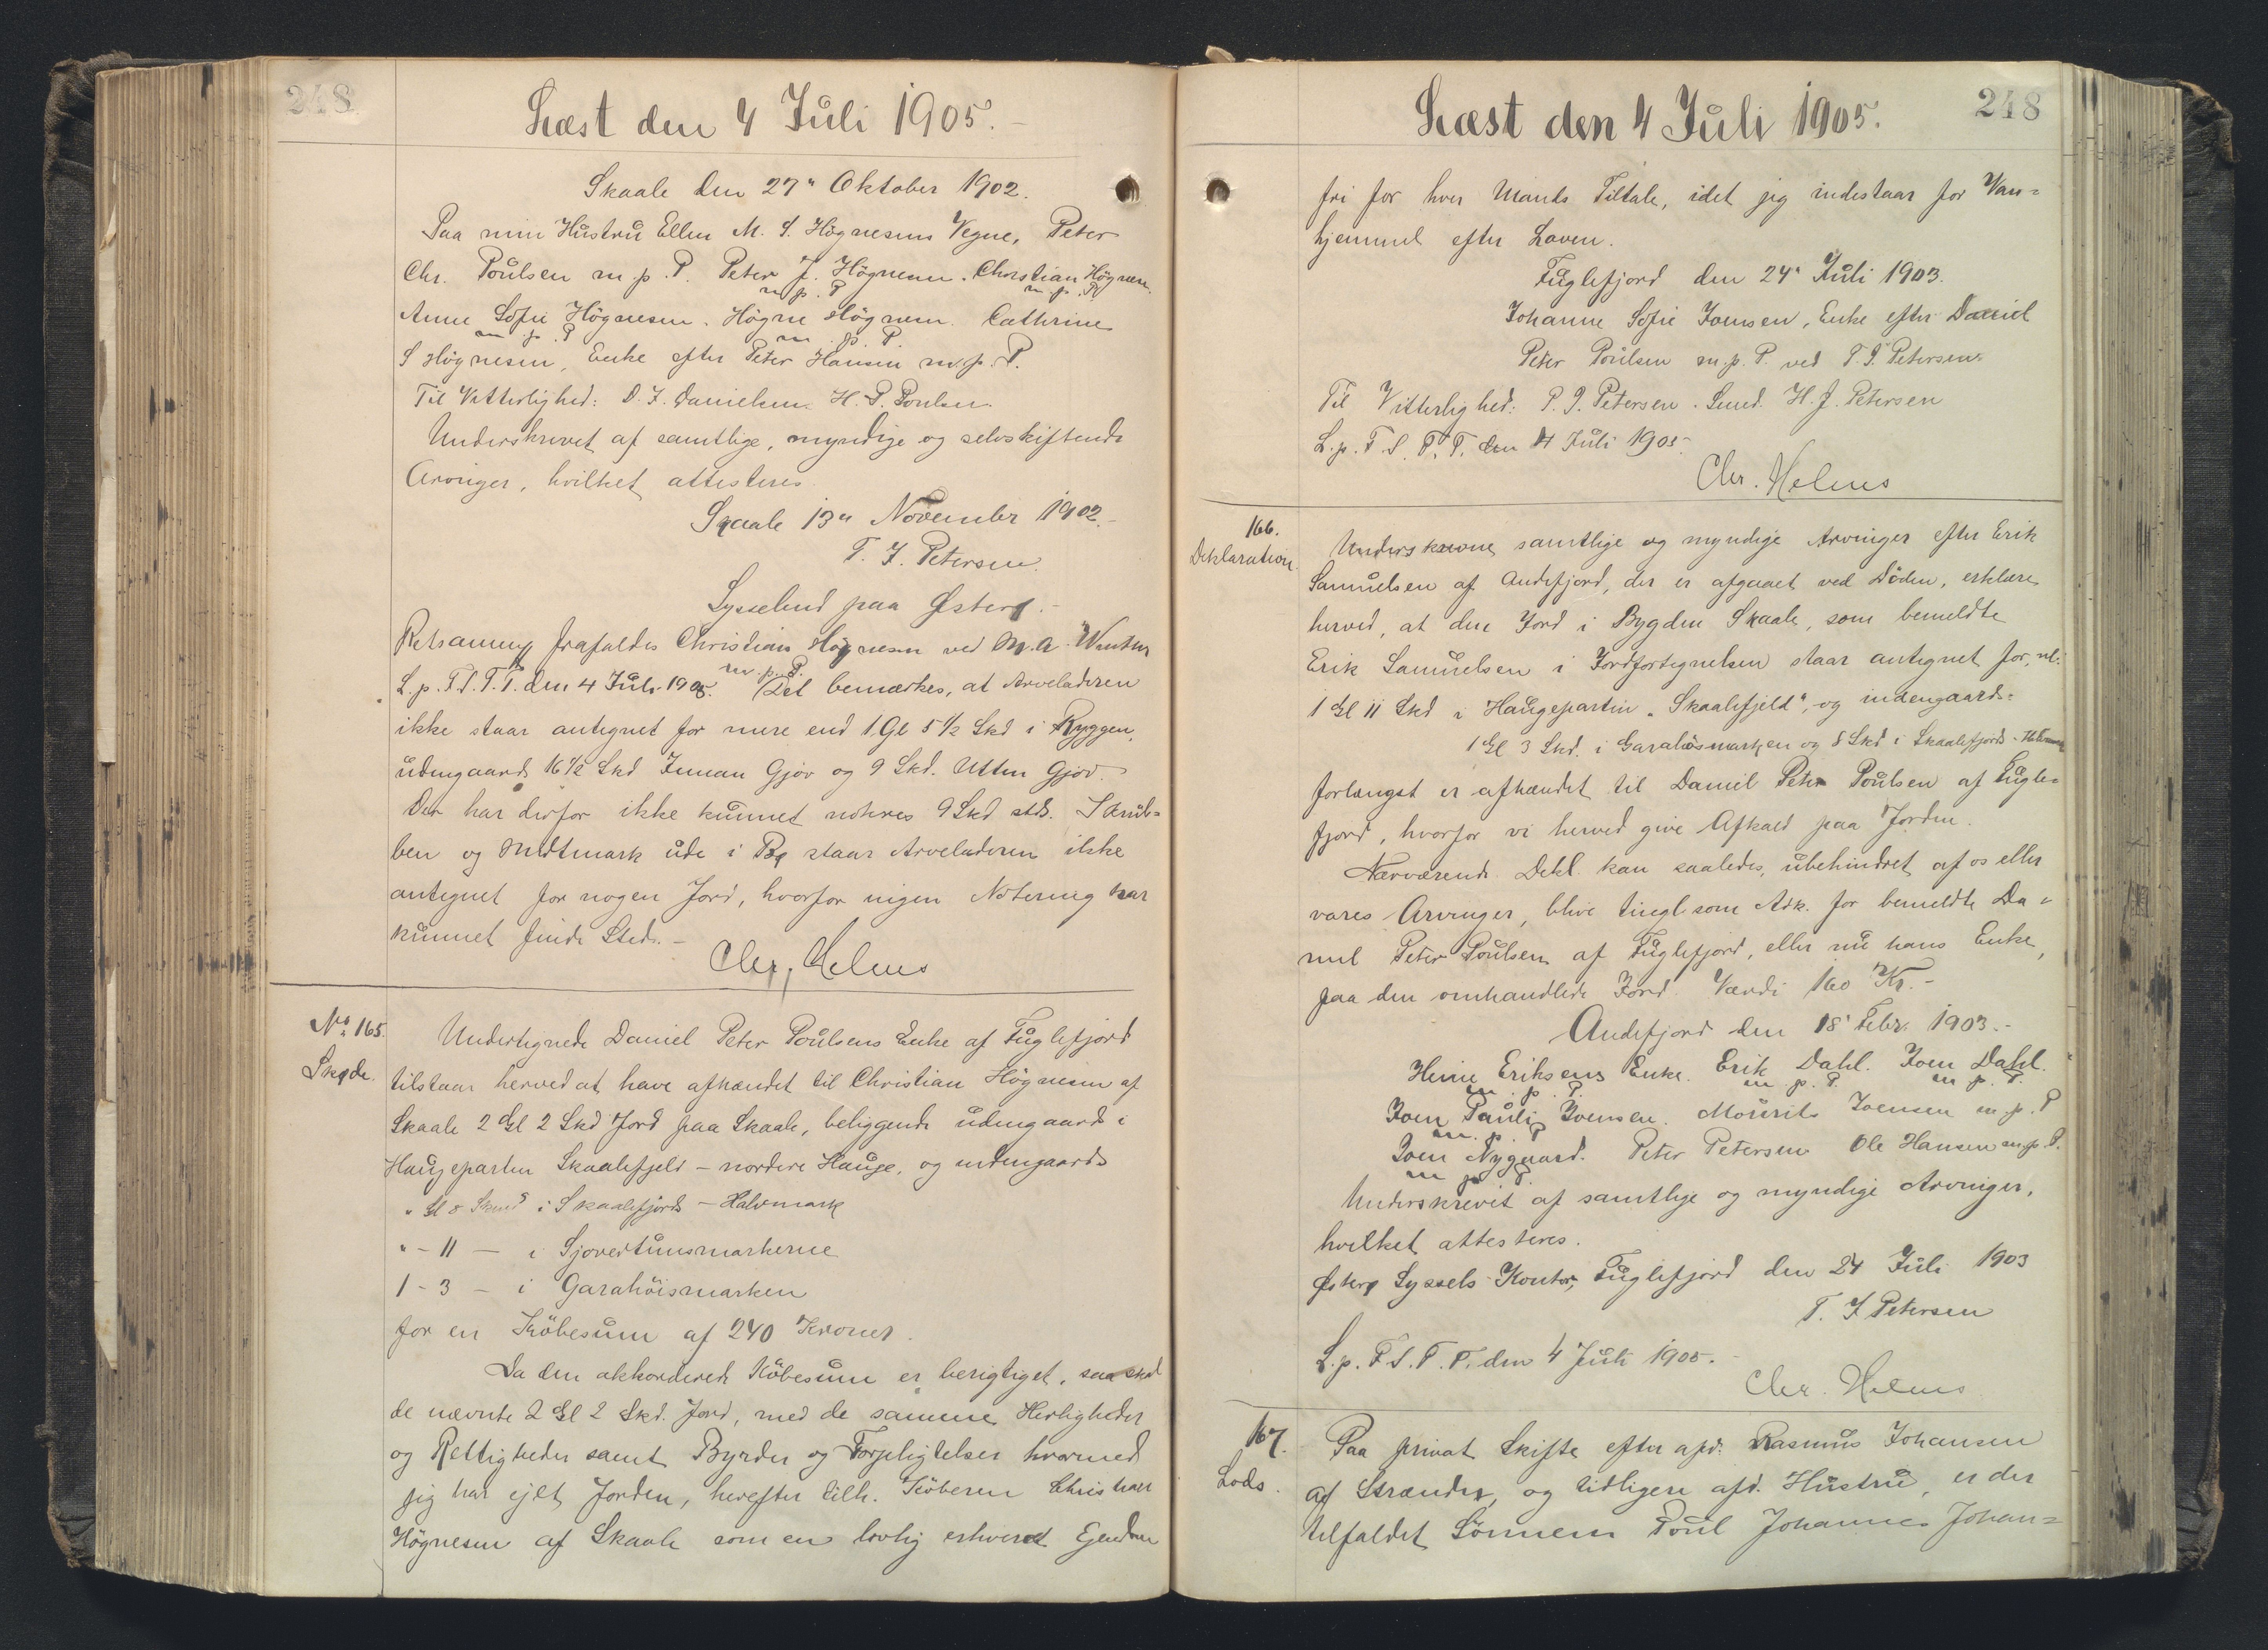 248
Læst den 4 Juli 1905.
Skaale den 27" Oktober 1902.
Paa min Hustru Ellen M. S. Högnesens Vegne, Peter
Chr. Poulsen m.p.P. Peter J. Högnesen. Christian Högnesen.
m.p.P m.p.P.
Anne Sofie Högnesen. Högne Högnesen. Cathrine
m.p.P m.p.P.
S Högnesen, Enke efter Peter Hansen m.p.P.
Til Vitterlighed: D. J. Danielsen H. P. Poulsen.
Underskrevet af samtlige, myndige og selvskiftende
Arvinger, hvilket attesteres.
Skaale 13" November 1902.-
T. J. Petersen.
Sysselmd paa Østerø.-
Retsanmg frafaldes Christian Högnesen ved M. A. Winther
m.p.P.
L.p.F.S.T.T. den 4 Juli 1905. Det bemærkes, at Arveladeren
ikke staar antegnet for mere end 1 Gl 5 1/2 Skd i Ryggen,
udengaards 16 1/2 Skd Innan Gjov og 9 Skd. Utten Gjov.
Der har derfor ikke kunnet noteres 9 Skd stds. I Krub=
ben og Midtmark ude i Bø staar Arveladeren ikke
antegnet for nogen Jord, hvorfor ingen Notering har
kunnet finde Sted.-
Chr. Helms
No 165.
Skøde.
Undertegnede Daniel Peter Poulsens Enke af Fuglefjord
tilstaar herved at have afhændet til Christian Högnesen af
Skaale 2 Gl 2 Skd Jord paa Skaale, beliggende udengaards i
Haugeparten Skaalefjeld - nordere Hauge, og indengaards
" Gl 8 Skind i Skaalefjords - Halvmark
" - 11 - i Sjovertunsmarkerne
1 - 3 - i Garahöismarken
for en Köbesum af 240 Kroner.
Da den akkorderede Köbesum er berigtiget, saa skal
de nævnte 2 Gl 2 Skd. Jord, med de samme Herligheder
og Rettigheder samt Byrder og Forpligtelser hvormed
jeg har ejet Jorden, herefter tilh. Köberen Christian
Högnesen af Skaale som en lovlig erhvervet Ejendom
248
Læst den 4 Juli 1905.
fri for hver Mands Tiltale, idet jeg indestaar for Van=
hjemmel efter Loven.
Fuglefjord den 24" Juli 1903.
Johanne Sofie Joensen, Enke efter Daniel
Peter Poulsen m.p.P. ved T. J. Petersen
Til Vitterlighed: P. J. Petersen. Smed. H. J. Petersen
L.p.F.S.T.T. den 4 Juli 1905.
Chr. Helms
166.
Deklaration.
Underskrevne samtlige og myndige Arvinger efter Erik
Samuelsen af Andefjord, der er afgaaet ved Döden, erklære
herved, at den Jord i Bygden Skaale, som bemeldte
Erik Samuelsen i Jordfortegnelsen staar antegnet for, nl:
1 Gl 11 Skd i Haugepartin "Skaalefjeld", og indengaards=
1 Gl 3 Skd. i Garahösmarken og 8 Skd i Skaalefjords-Halvmark
forlængst er afhændet til Daniel Peter Poulsen af Fugle=
fjord, hvorfor vi herved give Afkald paa Jorden.
Nærværende Dekl. kan saaledes, ubehindret af os eller
vores Arvinger, blive tingl. som Adk. for bemeldte Da=
niel Peter Poulsen af Fuglefjord, eller nu hans Enke,
paa den omhandlede Jord. Værdi 160 Kr.-
Andefjord den 18' Febr. 1903.-
Heine Eriksens Enke. Erik Dahl. Joen Dahl.
m.p.P. m.p.P. m.p.P.
Joen Pauli Joensen. Mourits Joensen m.p.P
m.p.P
Joen Nygaard. Peter Petersen Ole Hansen m.p.P.
m.p.P.
Underskrevet af samtlige og myndige Arvinger,
hvilket attesteres.
Østerø Syssels Kontor, Fuglefjord den 24 Juli 1903
T. J Petersen
L.p.F.S.T.T. den 4 Juli 1905.-
Chr. Helms
167.
Lods.
Paa privat Skifte efter afd: Rasmus Johansen
af Strænder, og tidligere afd. Hustru, er der
tilfaldet Sönnen Poul Johannes Johan=